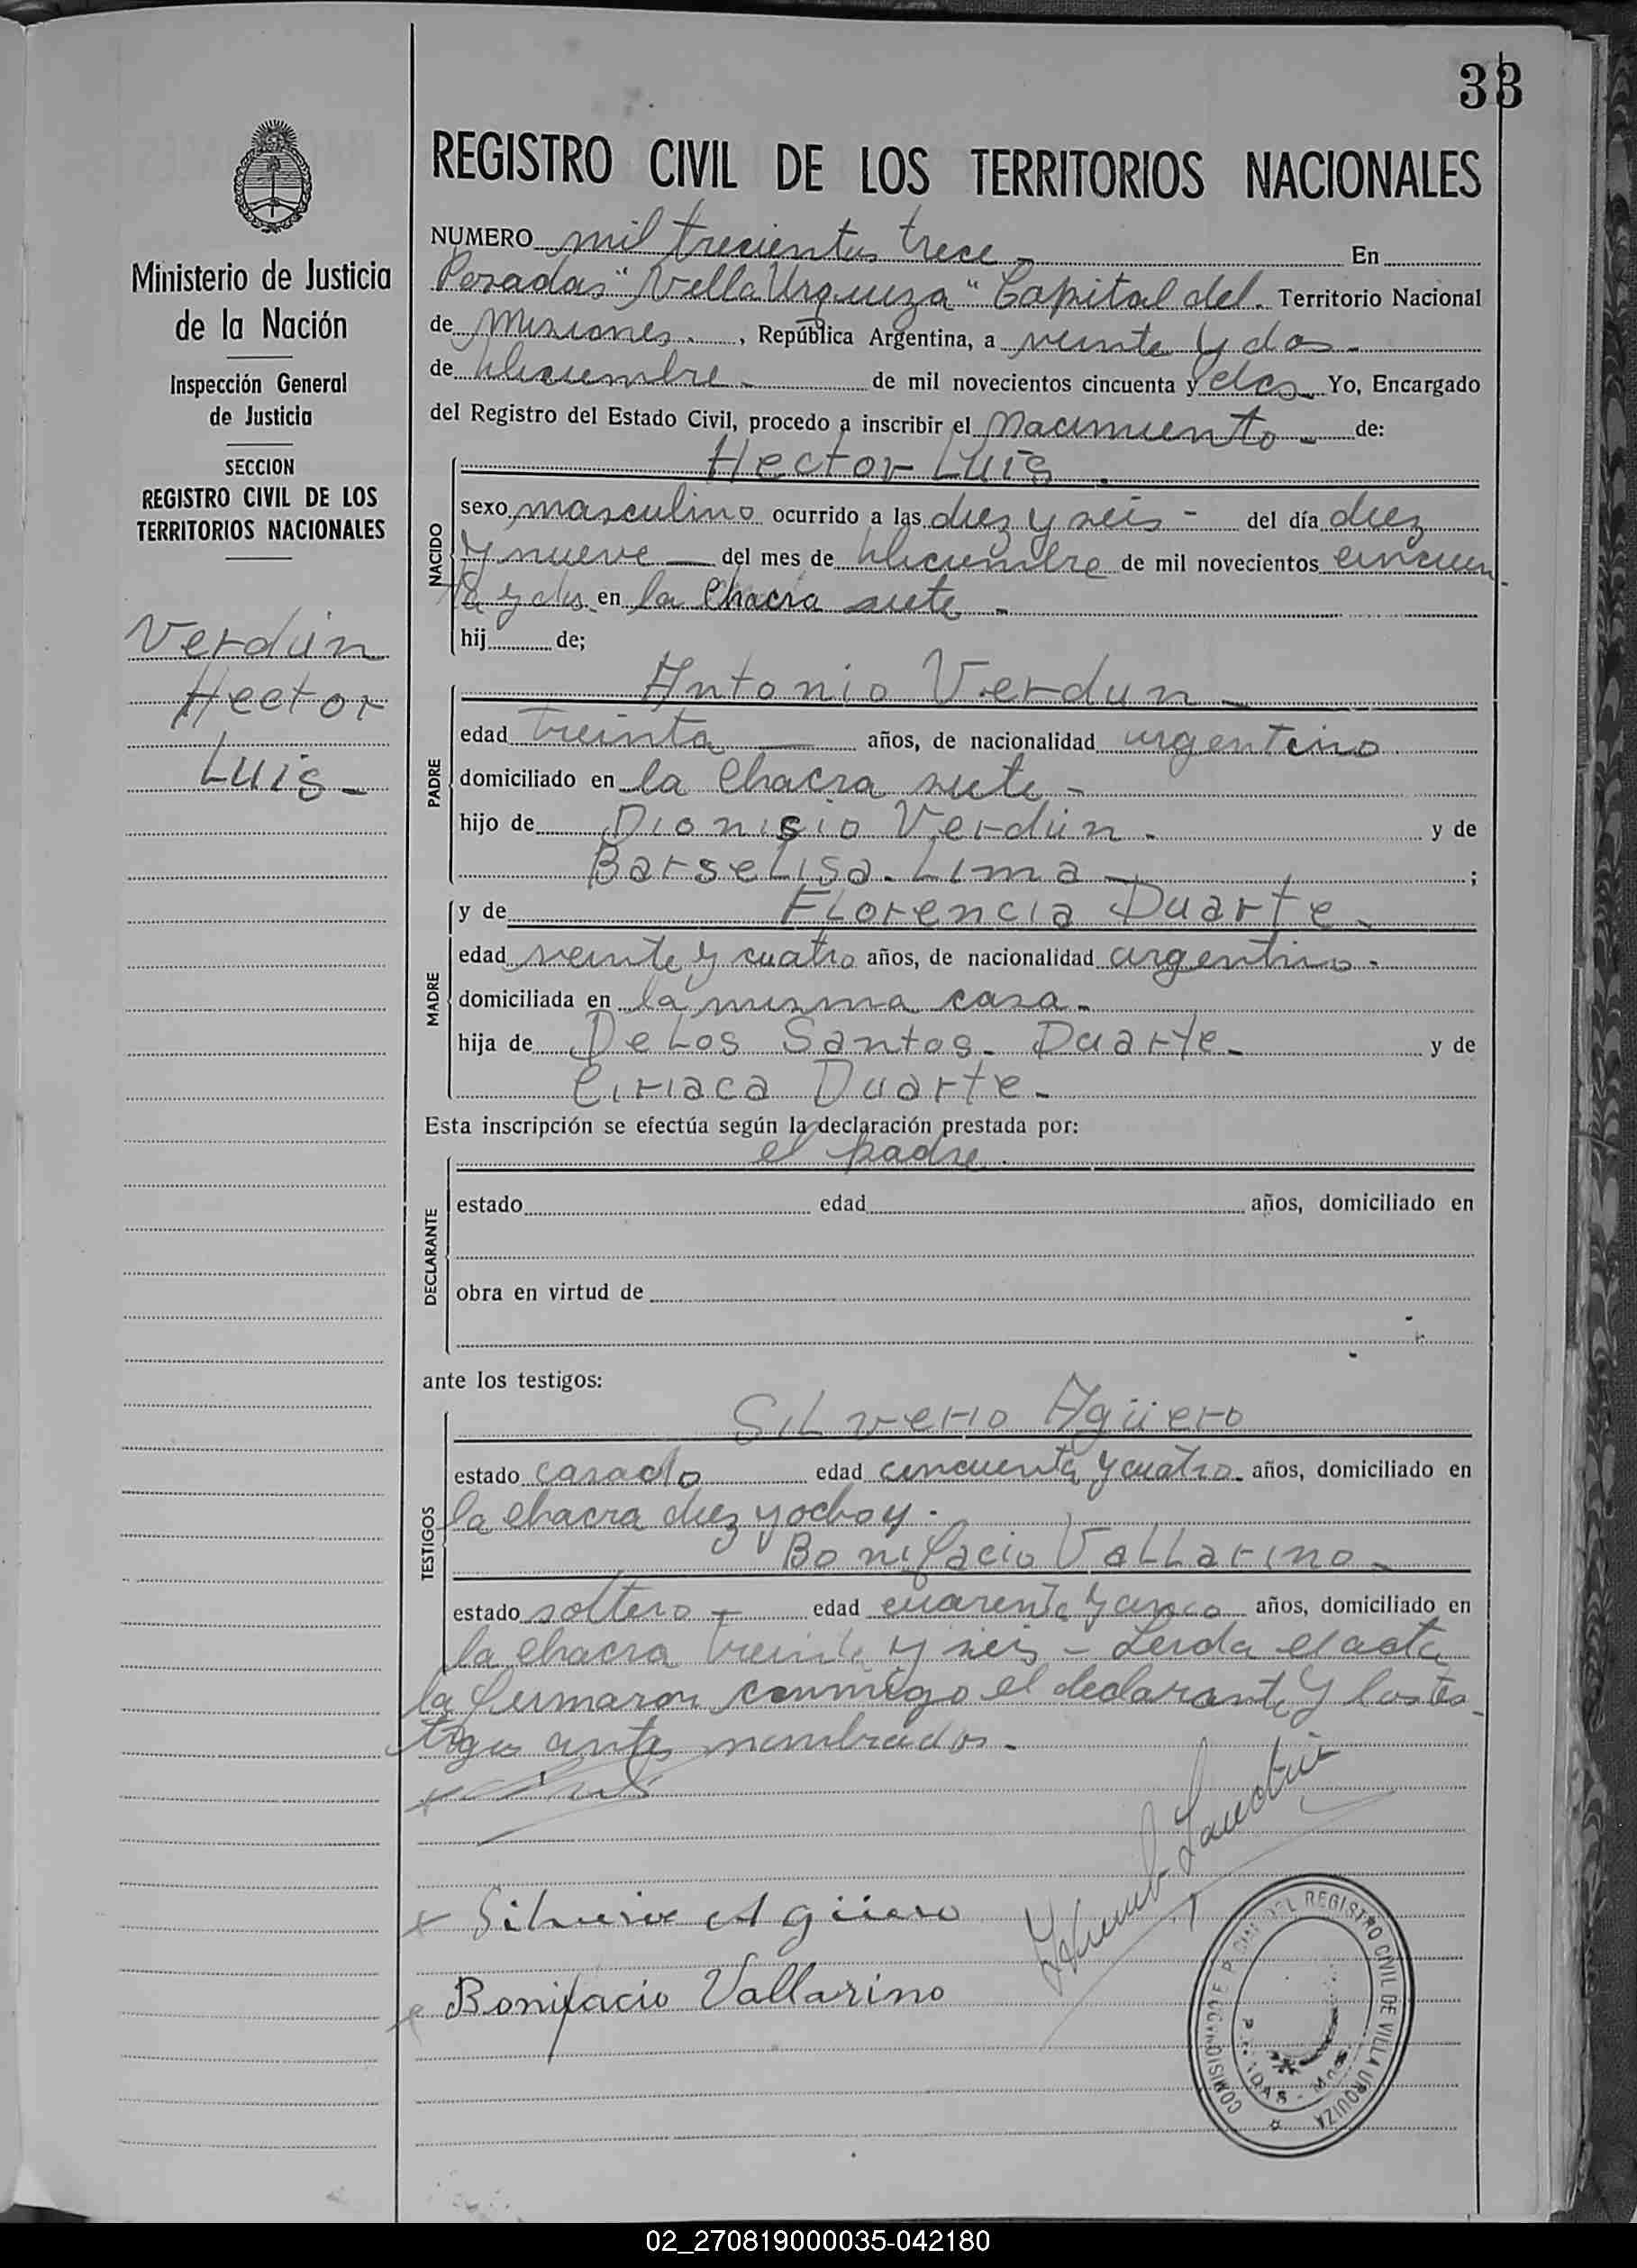 33
REGISTRO CIVIL DE LOS TERRITORIOS NACIONALES
Ministerio de Justicia
de la Nación
Inspección General
de Justicia
SECCION
REGISTRO CIVIL DE LOS
TERRITORIOS NACIONALES
Verdún
Hector
Luis-
NUMERO mil trecientos trece - En
Posadas "Villa Urquiza" Capital del. Territorio Nacional
de Misiones. , República Argentina, a veinte y dos-
de diciembre - de mil novecientos cincuenta y dos Yo, Encargado
del Registro del Estado Civil, procedo a inscribir el nacimiento - de:
Hector Luis.
NACIDO
sexo masculino ocurrido a las diez y seis - del día diez
y nueve - del mes de diciembre de mil novecientos cincuen
ta y dos en la chacra siete -
hij de;
PADRE
Antonio Verdun -
edad treinta años, de nacionalidad argentino
domiciliado en la chacra siete -
hijo de Dionisio Verdún. y de
Barselisa. Lima - ;
MADRE
y de Florencia Duarte.
edad veinte y cuatro años, de nacionalidad argentino-
domiciliada en la misma casa-
hija de De Los Santos- Duarte- y de
Ciriaca Duarte-
Esta inscripción se efectúa según la declaración prestada por:
DECLARANTE
el padre.
estado edad años, domiciliado en
obra en virtud de
ante los testigos:
TESTIGOS
Silverio Agüero
estado casado edad cincuenta y cuatro años, domiciliado en
la chacra diez y ocho y.
Bonifacio Vallarino-
estado soltero - edad cuarenta y cinco años, domiciliado en
la chacra treinta y seis - Leida el acta
la firmaron conmigo el declarante y los tes-
tigos antes nombrados.-
Silverio Agüero
Bonifacio Vallarino
DEL REGISTRO CIVIL DE VILLA URQUIZA
02_270819000035-042180